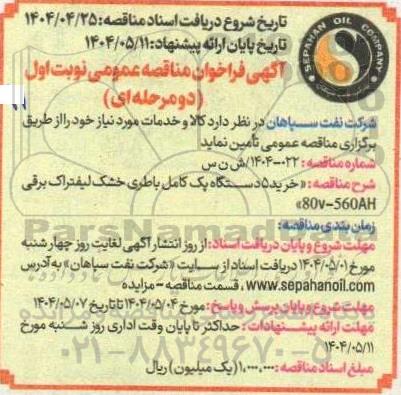 SEPAHAN OIL COMPANY
تاریخ شروع دریافت اسناد مناقصه: ۱۴۰۴/۰۴/۲۵
تاریخ پایان ارائه پیشنهاد: ۱۴۰۴/۰۵/۱۱
آگهی فراخوان مناقصه عمومی نوبت اول
(دو مرحله ای)
شرکت نفت سپاهان در نظر دارد کالا و خدمات مورد نیاز خود را از طریق
برگزاری مناقصه عمومی تأمین نماید
شماره مناقصه: ۰۲۲-۱۴۰۴/ش ن س
شرح مناقصه: «خرید ۵ دستگاه پک کامل باطری خشک لیفتراک برقی
80V-560AH»
زمان بندی مناقصه:
مهلت شروع و پایان دریافت اسناد: از روز انتشار آگهی لغایت روز چهارشنبه
مورخ ۱۴۰۴/۰۵/۰۱ دریافت اسناد از سایت «شرکت نفت سپاهان» به آدرس
www.sepahanoil.com ، قسمت مناقصه - مزایده
مهلت شروع و پایان پرسش و پاسخ: مورخ ۱۴۰۴/۰۵/۰۴ تا تاریخ ۱۴۰۴/۰۵/۰۷
مهلت ارائه پیشنهادات: حداکثر تا پایان وقت اداری روز شنبه مورخ
۱۴۰۴/۰۵/۱۱
مبلغ اسناد مناقصه: ۱,۰۰۰,۰۰۰ (یک میلیون) ریال
ParsNamadData
۰۲۱-۸۸۳۴۹۶۷۰-۵